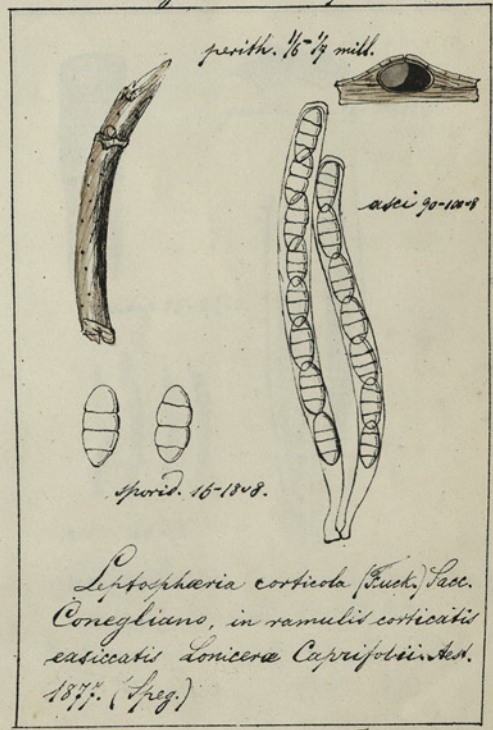 perith. 1/6-1/7 mill.
asci 90-100=8
sporid. 15-18=8.
Leptosphæria corticola (Fuck.) Sacc.
Conegliano, in ramulis corticatis
exsiccatis Loniceræ Caprifolii. Aest.
1877. (Speg.)